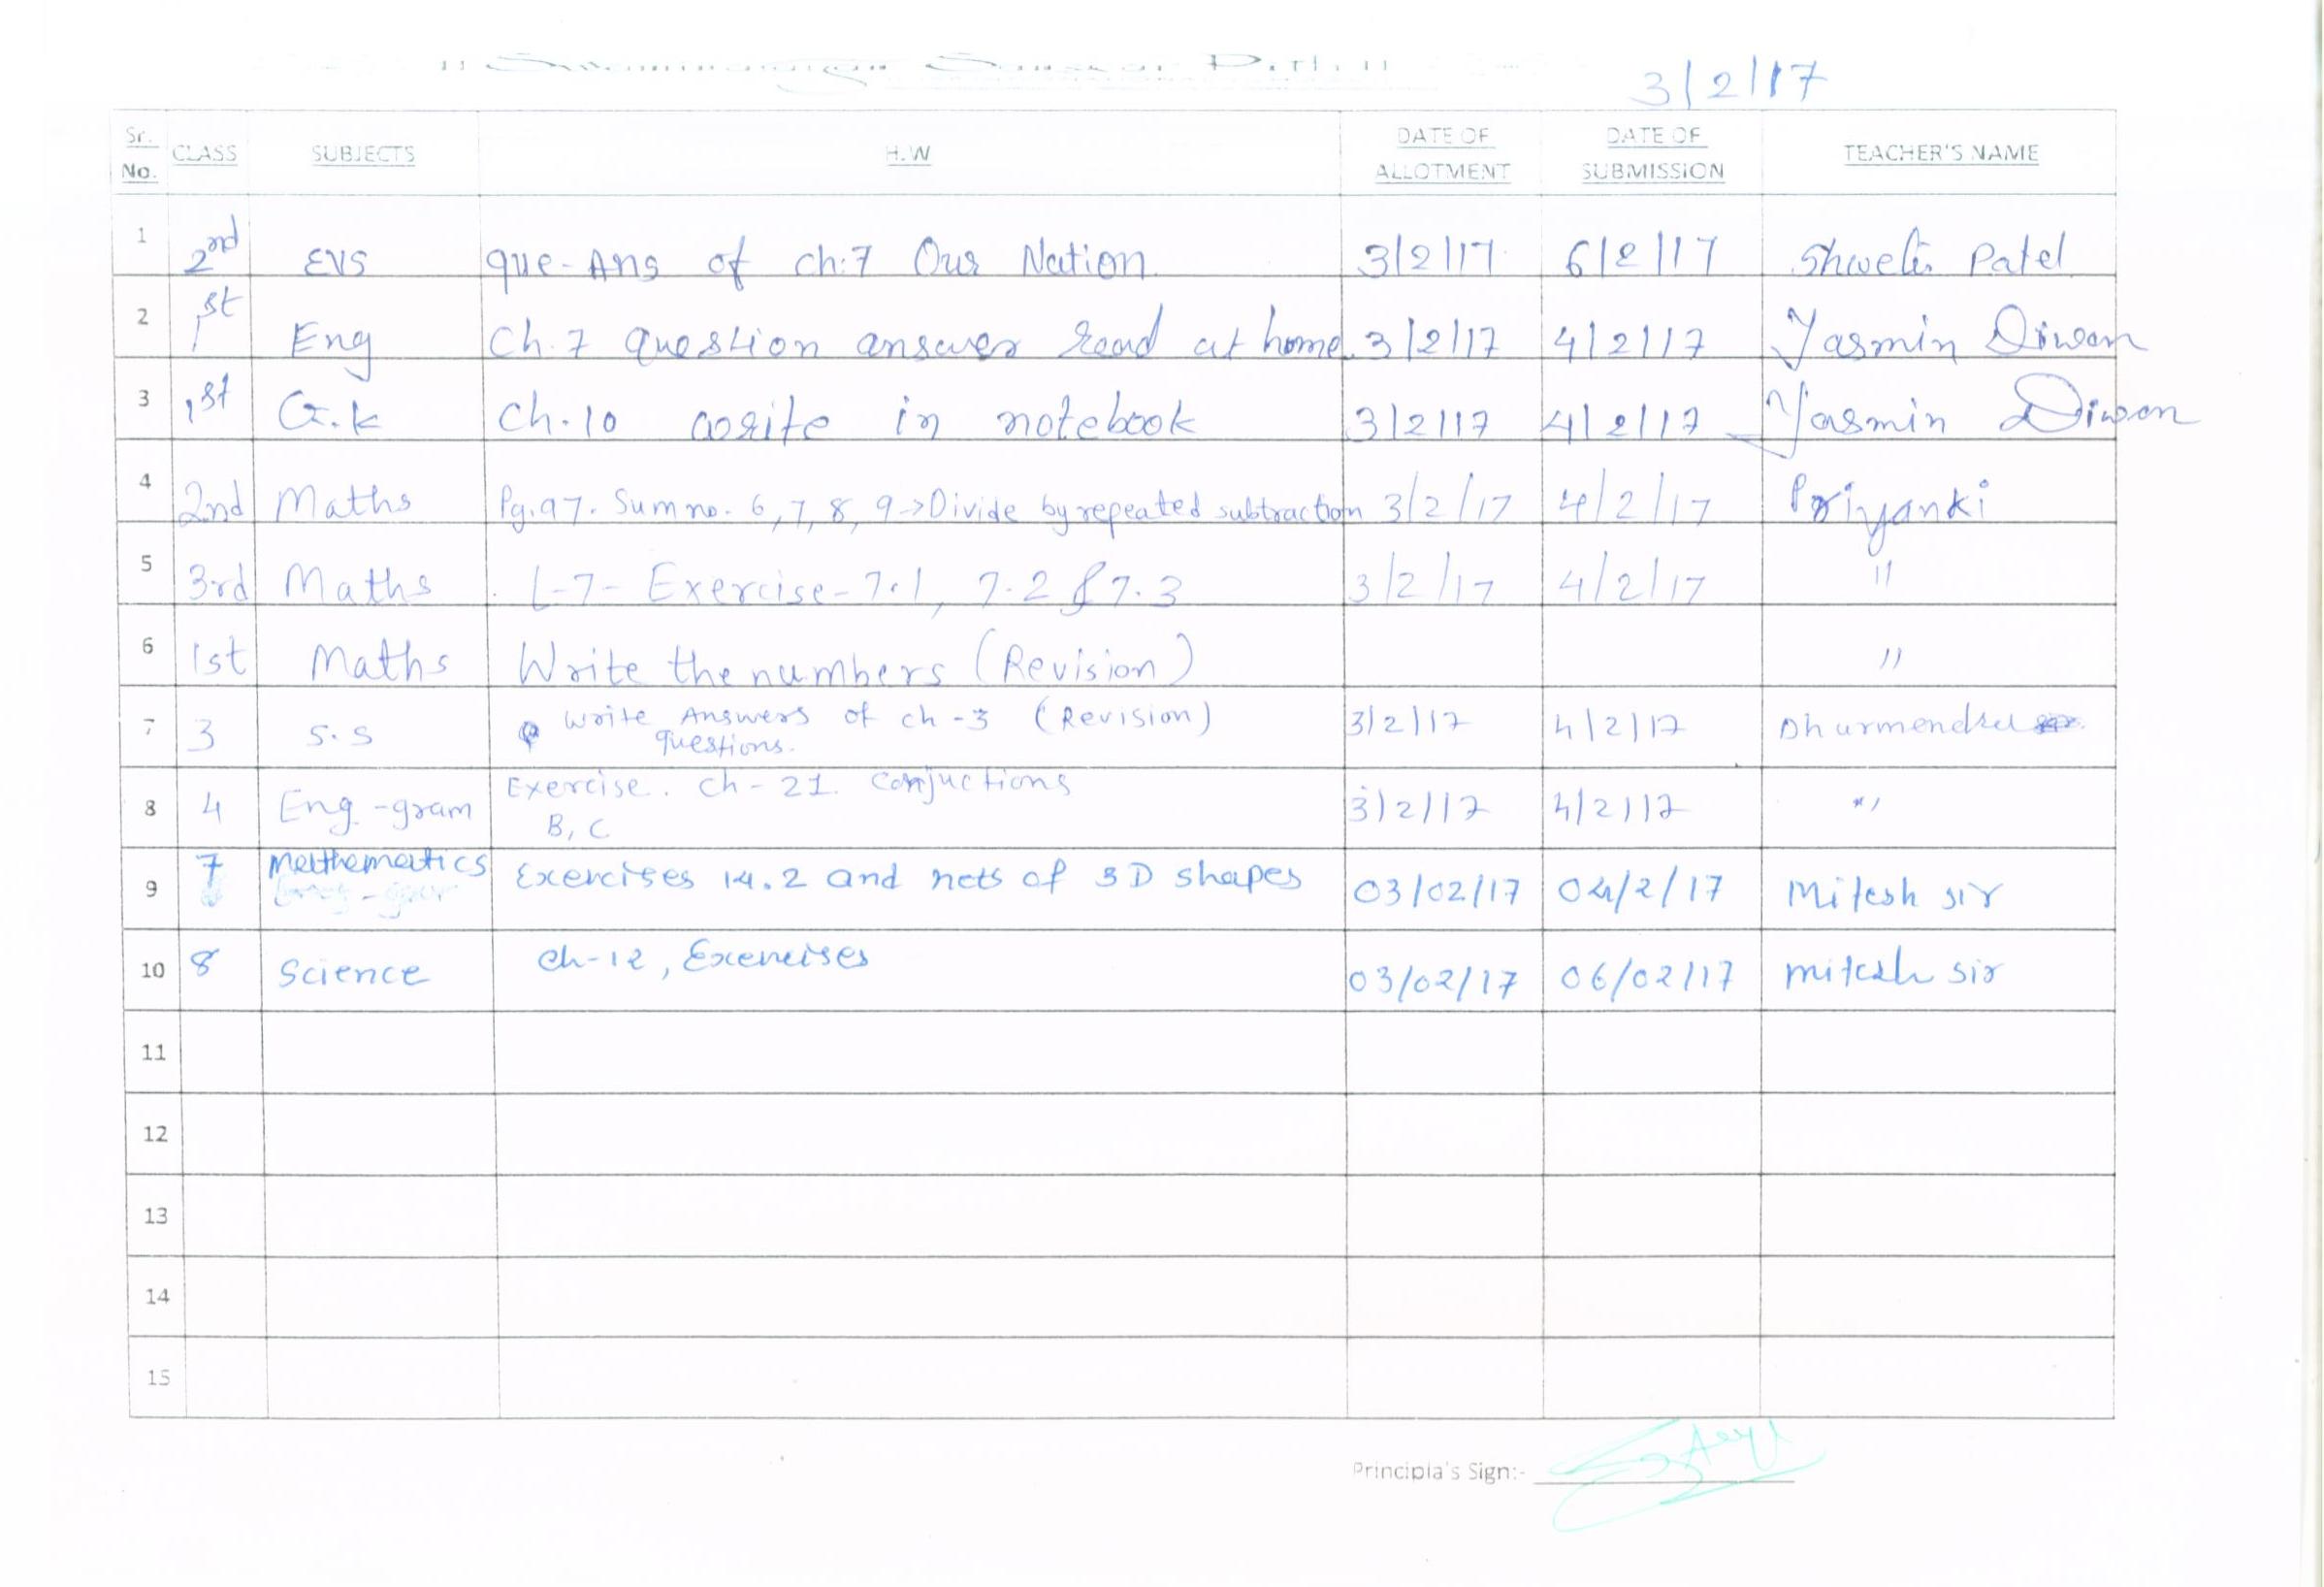 3/2/17
Sr. No. CLASS SUBJECTS H.W DATE OF ALLOTMENT DATE OF SUBMISSION TEACHER'S NAME
1 2nd EVS que-Ans of ch:7 Our Nation 3/2/17 6/2/17 Shweta Patel
2 1st Eng Ch.7 question answer read at home. 3/2/17 4/2/17 Yasmin Diwan
3 1st G.k Ch.10 write in notebook 3/2/17 4/2/17 Yasmin Diwan
4 2nd Maths Pg.97. Sum no. 6, 7, 8, 9 → Divide by repeated subtraction 3/2/17 4/2/17 Priyanki
5 3rd Maths L-7- Exercise-7.1, 7.2 & 7.3 3/2/17 4/2/17 "
6 1st Maths Write the numbers (Revision) "
7 3 S.S Write Answers of ch-3 (Revision) 3/2/17 4/2/17 Dharmendra
questions.
8 4 Eng-gram Exercise. Ch-21. Conjuctions 3/2/17 4/2/17 "
B, C
9 7 Mathematics Exercises 14.2 and nets of 3D shapes 03/02/17 04/2/17 Mitesh sir
10 8 Science ch-12, Exercises 03/02/17 06/02/17 mitesh sir
11
12
13
14
15
Principla's Sign:-